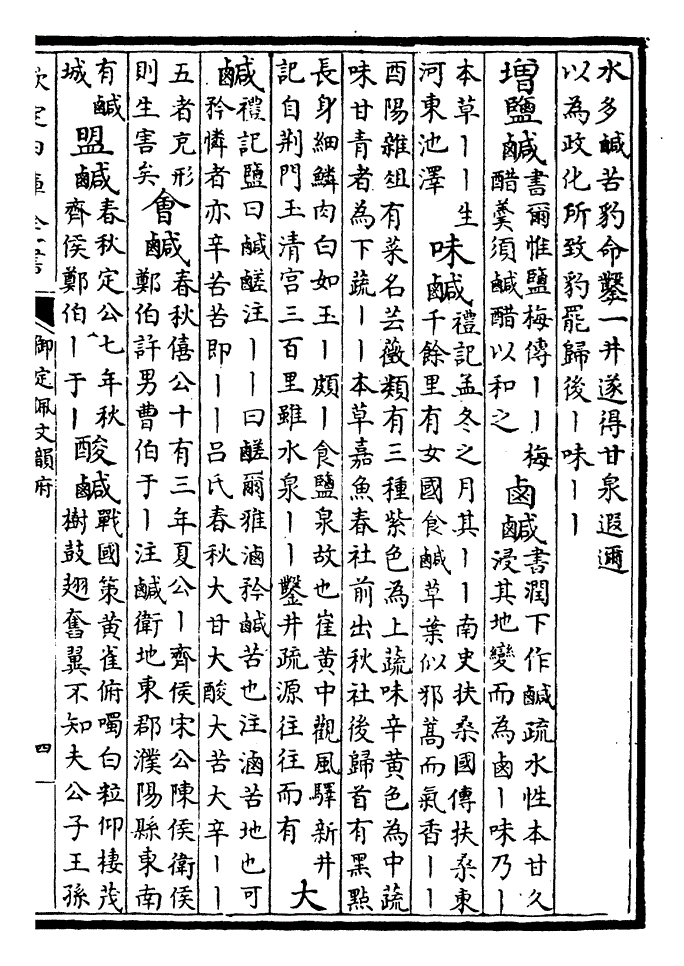 水多鹹苦豹命鑿一井遂得甘泉遐邇
以為政化所致豹罷歸後丨味丨丨
増鹽鹹書爾惟鹽梅傳丨丨梅
醋羹須鹹醋以和之
鹵鹹書潤下作鹹疏水性本甘久
浸其地變而為鹵丨味乃丨
本草丨丨生
河東池澤
味鹹禮記孟冬之月其丨丨南史扶桑國傳扶桑東
千餘里有女國食鹹草葉似邪蒿而氣香丨丨
酉陽雜俎有菜名芸薇類有三種紫色為上蔬味辛黄色為中蔬
味甘青者為下蔬丨丨本草嘉魚春社前出秋社後歸首有黑點
長身細鱗肉白如玉丨頗丨食鹽泉故也崔黄中觀風驛新井
記自荆門玉清宫三百里雖水泉丨丨鑿井疏源往往而有
大
鹹禮記鹽曰鹹鹺注丨丨曰鹺爾雅滷矜鹹苦也注滷苦地也可
矜憐者亦辛苦苦即丨丨吕氏春秋大甘大酸大苦大辛丨丨
五者充形
則生害矣
會鹹春秋僖公十有三年夏公丨齊侯宋公陳侯衛侯
鄭伯許男曹伯于丨注鹹衛地東郡濮陽縣東南
有鹹
城
盟鹹春秋定公七年秋
齊侯鄭伯丨于丨
酸鹹戰國策黄雀俯噣白粒仰棲茂
樹鼓翅奮翼不知夫公子王孫
欽定四庫全書
御定佩文韻府
四